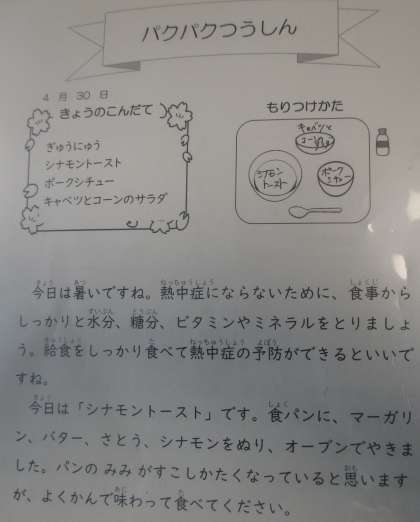 パクパクつうしん
4月30日
きょうのこんだて
ぎゅうにゅう
シナモントースト
ポークシチュー
キャベツとコーンのサラダ
もりつけかた
キャベツと
コーン
シナモン
トースト
ポーク
シチュー
今日は暑いですね。熱中症にならないために、食事から
しっかりと水分、糖分、ビタミンやミネラルをとりましょ
う。給食をしっかり食べて熱中症の予防ができるといいで
すね。
今日は「シナモントースト」です。食パンに、マーガリ
ン、バター、さとう、シナモンをぬり、オーブンでやきま
した。パンの みみ がすこしかたくなっていると思います
が、よくかんで味わって食べてください。